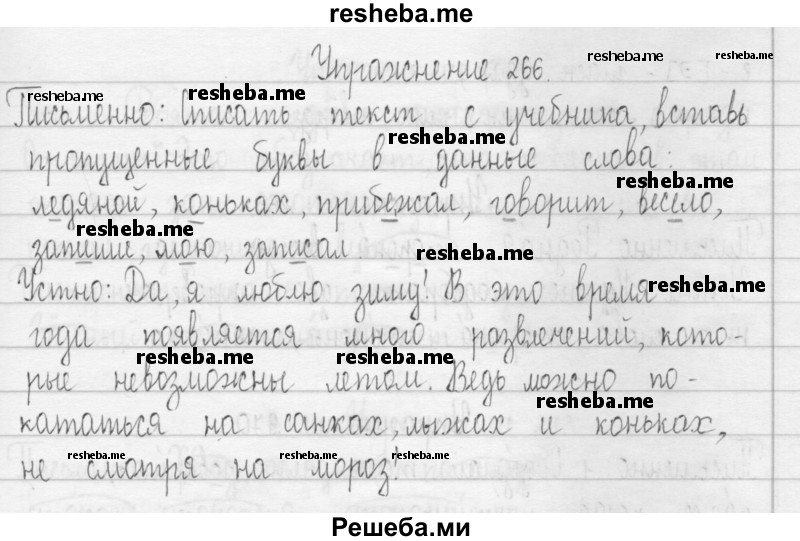 resheba.me
Упражнение 266.
resheba.me
resheba.me
resheba.me
resheba.me
Письменно: Списать текст с учебника, вставь
resheba.me
пропущенные буквы в данные слова:
resheba.me
ледяной, коньках, прибежал, говорит, весело,
resheba.me
запиши, мою, записал
Устно: Да, я люблю зиму! В это время
resheba.me
года появляется много развлечений, кото-
resheba.me
resheba.me
рые невозможны летом. Ведь можно по-
resheba.me
кататься на санках, лыжах и коньках,
resheba.me
resheba.me
resheba.me
resheba.me
не смотря на мороз!
Решеба.ми